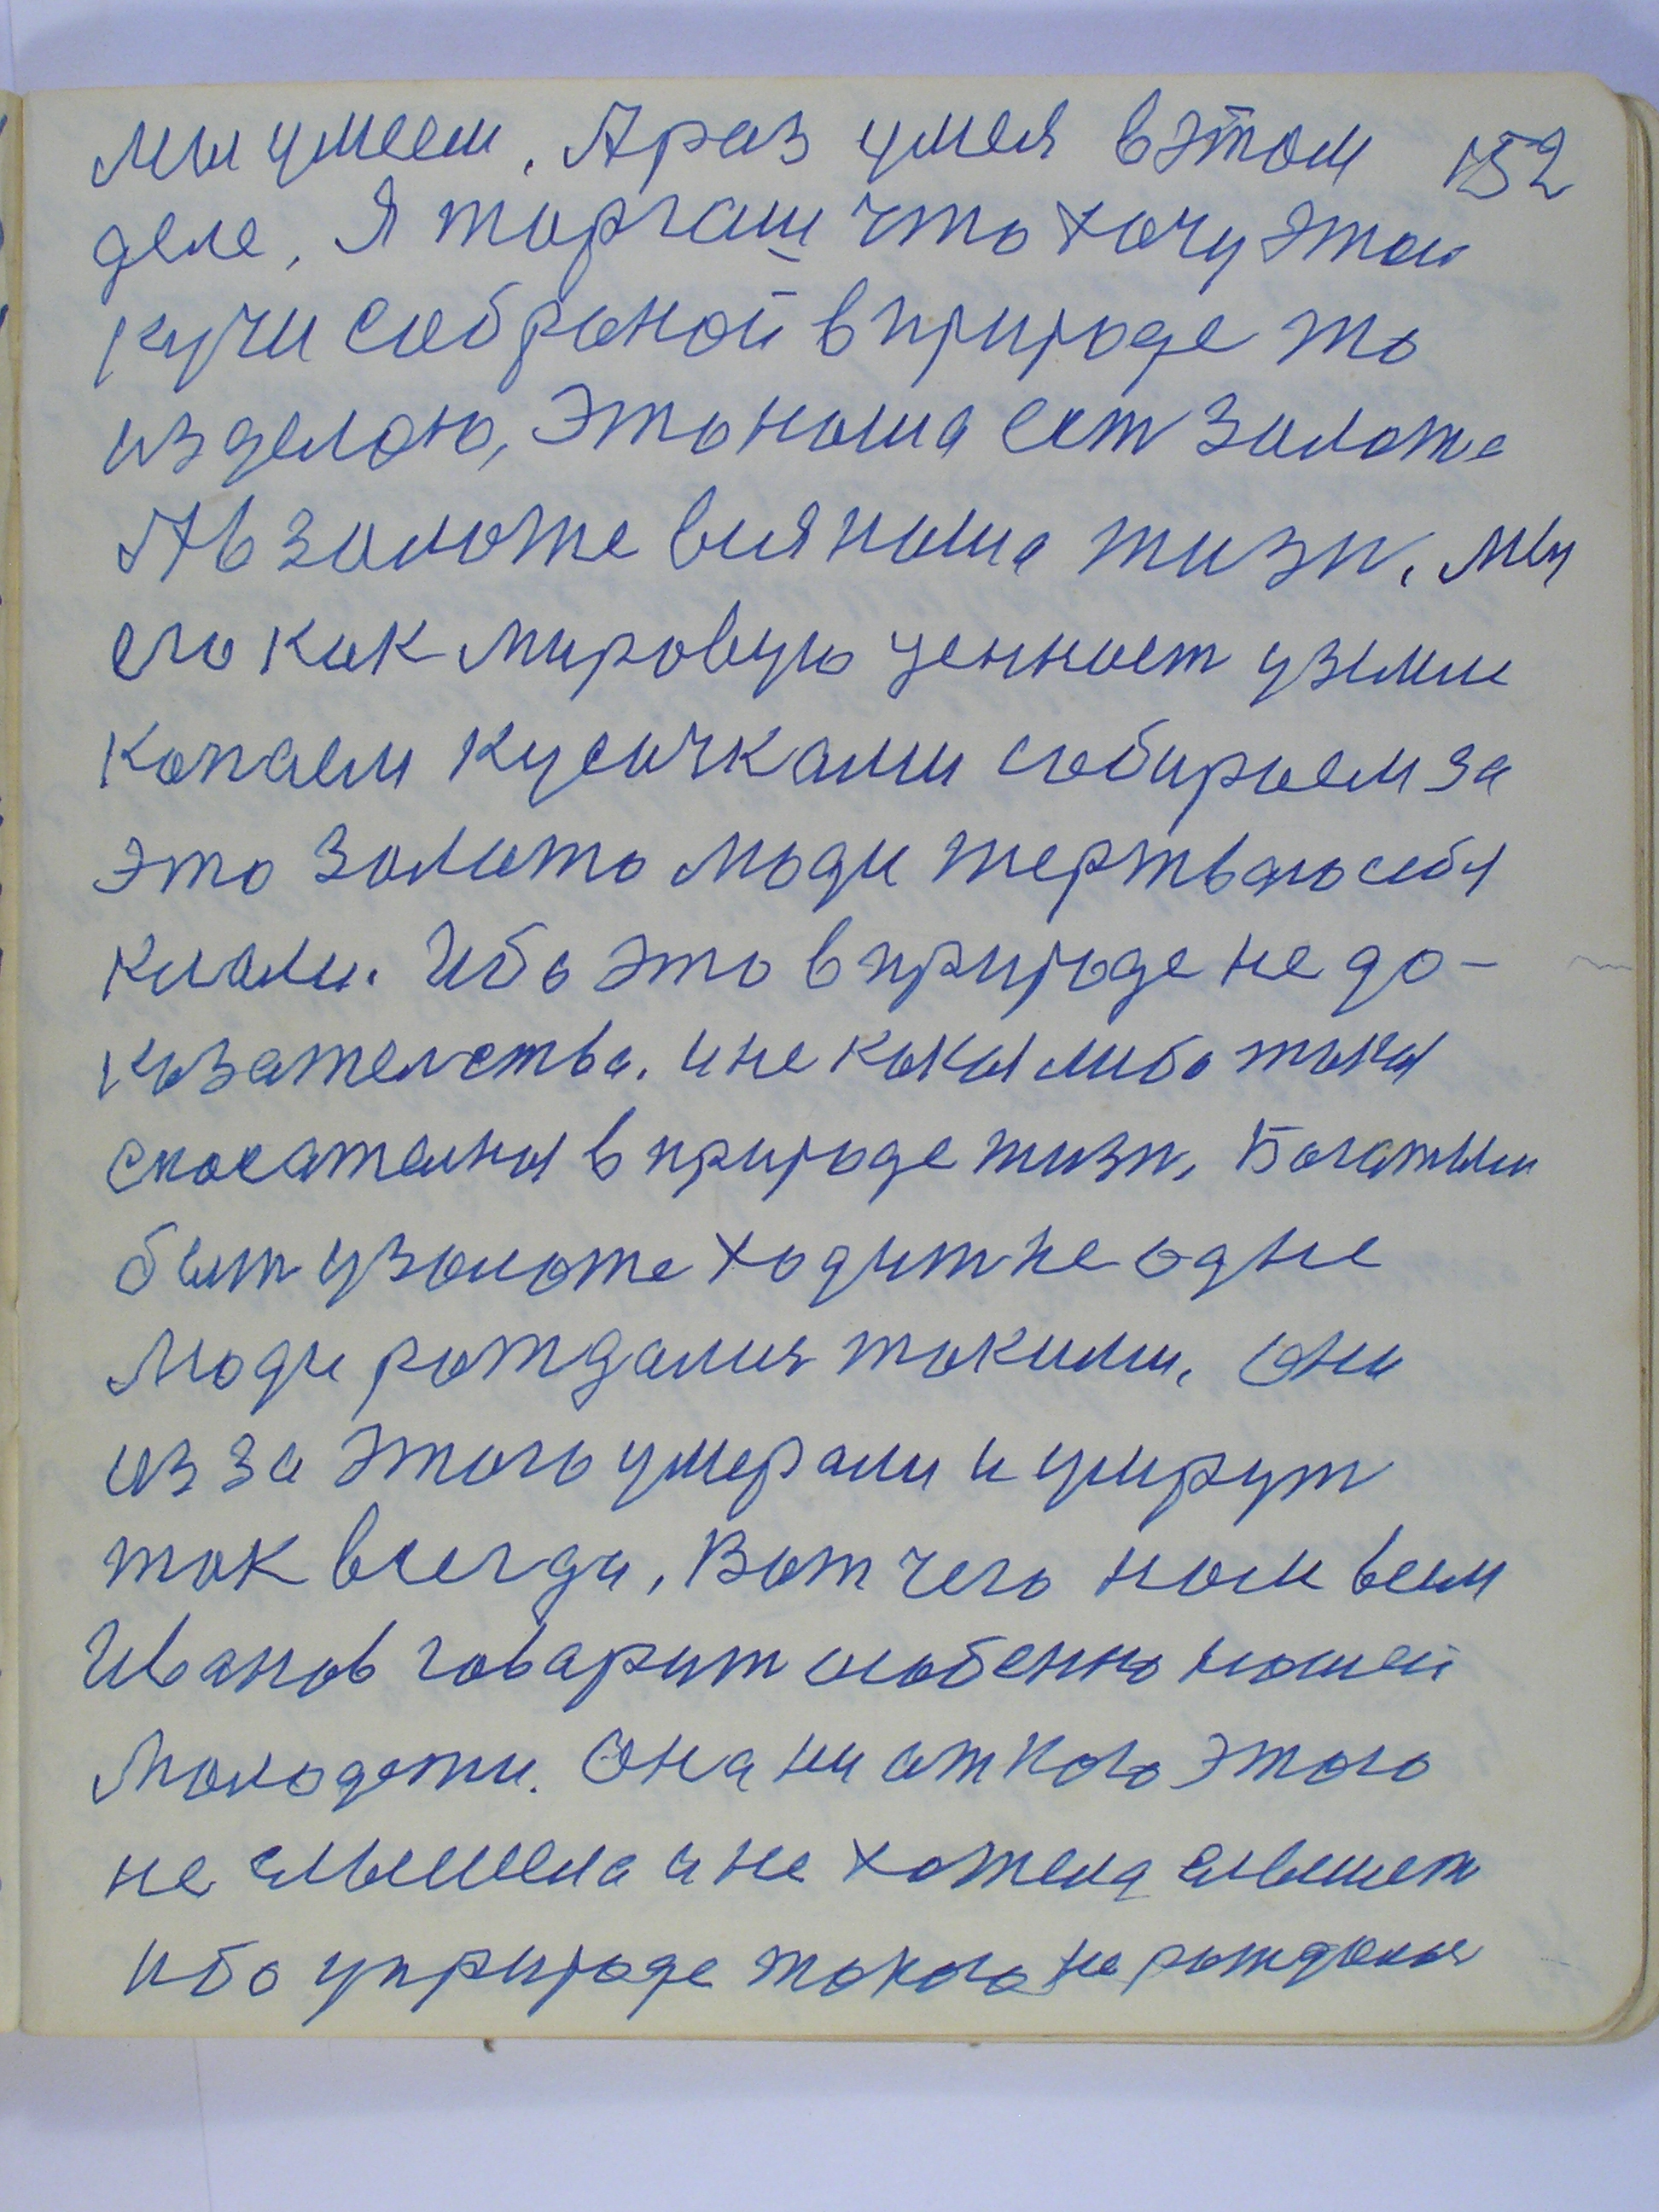 мы умеем. А раз умея в этом 152
деле, Я торгаш что хочу этой
кучи собраной в природе то
изделаю, Это наша ест золото
А в золоте вся наша жизн. мы
его как мировую ценност у земли
копаем кусочками собираем за
это золото люди жертваю себя
клали. Ибо это в природе не до-
казателства. и не кокая либо токая
спосателная в природе жизн, Богатым
быт у золоте ходит не одне
люди рождалися такими, они
из за этого умерали и умирут
так всегда, Вот чего нам всем
Иванов говарит особенно нашей
молодежи. Она ни от кого этого
не слышела и не хотела слышет
ибо у природе токого не рождалося